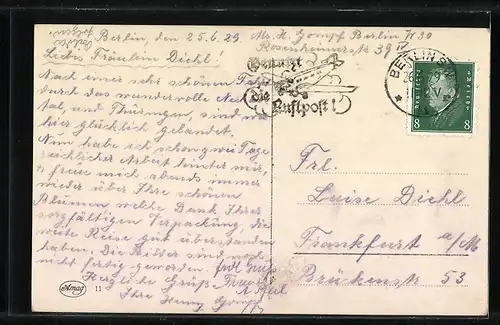 Berlin, den 25.6.29
Abs. H. Gompf Berlin W 30
Rosenheimerstr. 39 IV
Liebes Fräulein Diehl!
Nach einer sehr schönen Fahrt
durch das wundervolle
tal, und Thüringen, sind wir
hier glücklich gelandet.
Nun habe ich schon zwei Tage
Arbeit hinter mir,
freue mich abends immer
wieder über Ihre schönen
Blumen welche Dank Ihrer
sorgfältigen Verpackung, die
weite Reise gut überstanden
haben. Die Bilder sind noch
nicht fertig geworden.
Herzliche Grüße
Ihre Henny Gompf
Benutzt
Die
Luftpost!
BERLIN S
DEUTSCHES REICH
8 8
Frl.
Luise Diehl
Frankfurt a/M
Brückenstr. 53
Amag 11